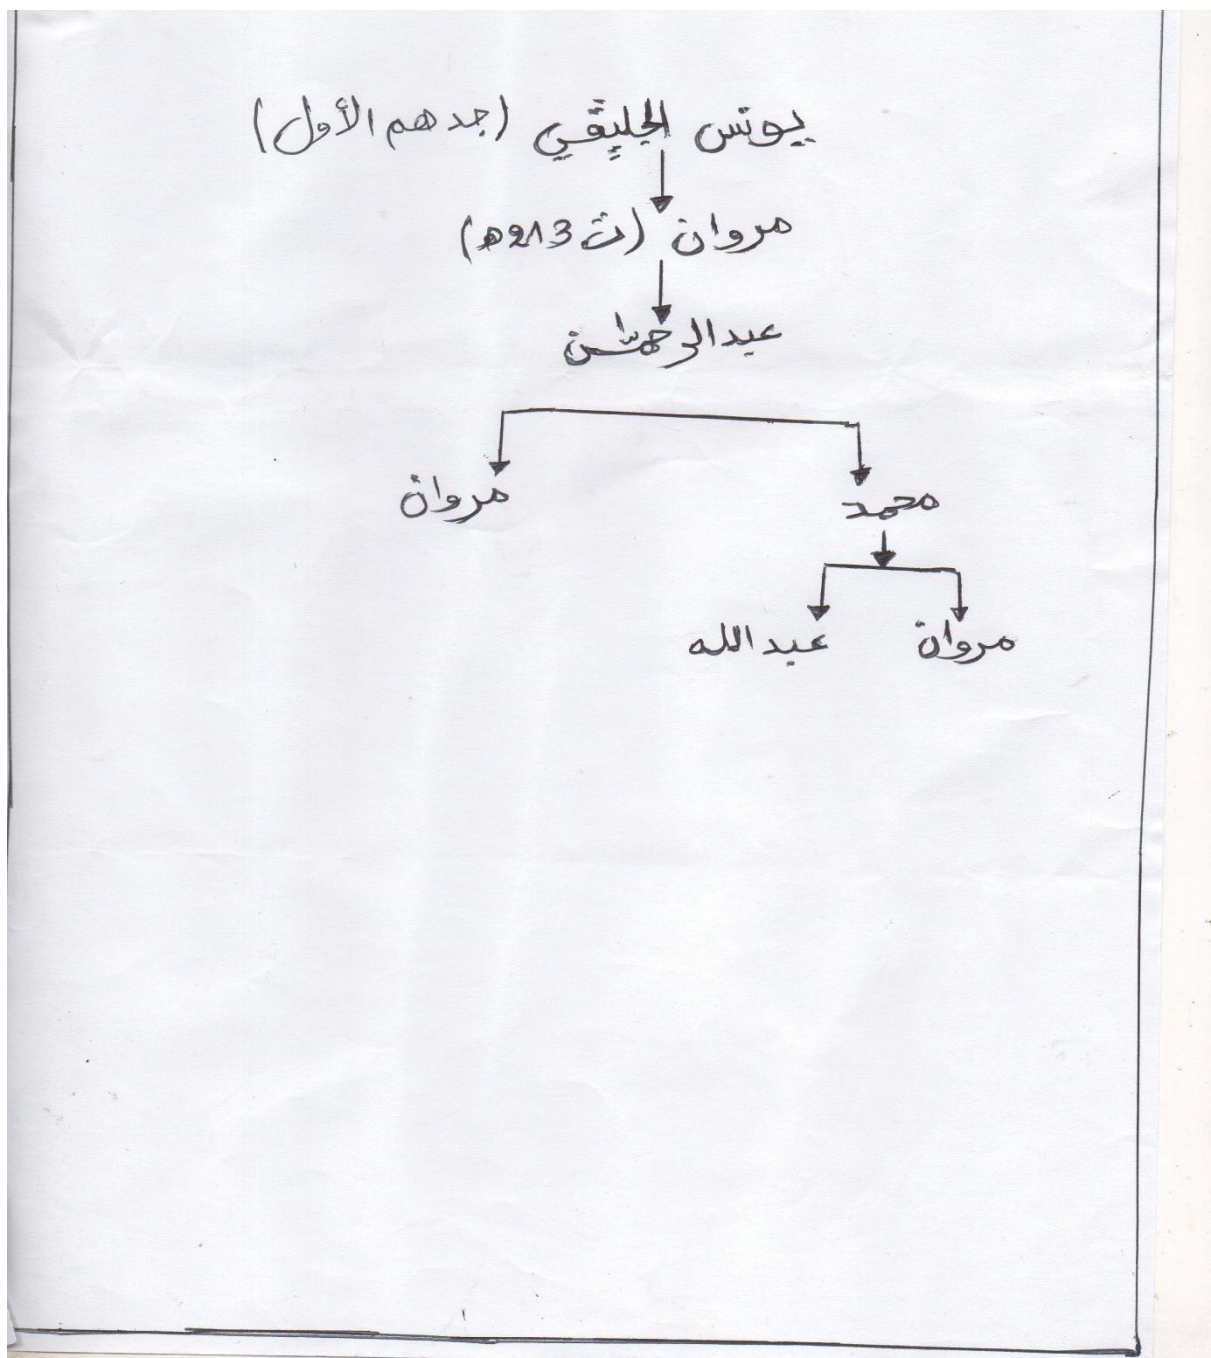 يونس الجليقي (جدهم الأول)
مروان (ت 213ه)
عبد الرحمن
محمد مروان
مروان عبد الله